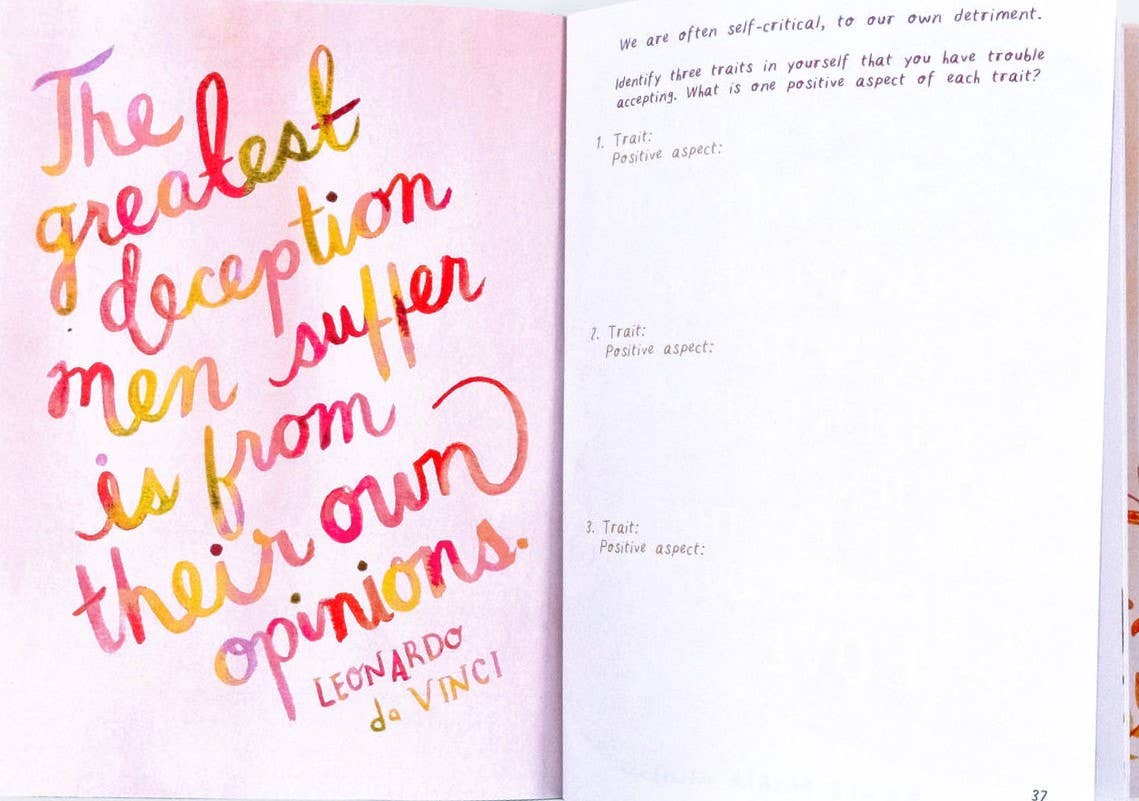 The
greatest
deception
men suffer
is from
their own
opinions.
LEONARDO
da VINCI
We are often self-critical, to our own detriment.
Identify three traits in yourself that you have trouble
accepting. What is one positive aspect of each trait?
1. Trait:
Positive aspect:
2. Trait:
Positive aspect:
3. Trait:
Positive aspect:
37